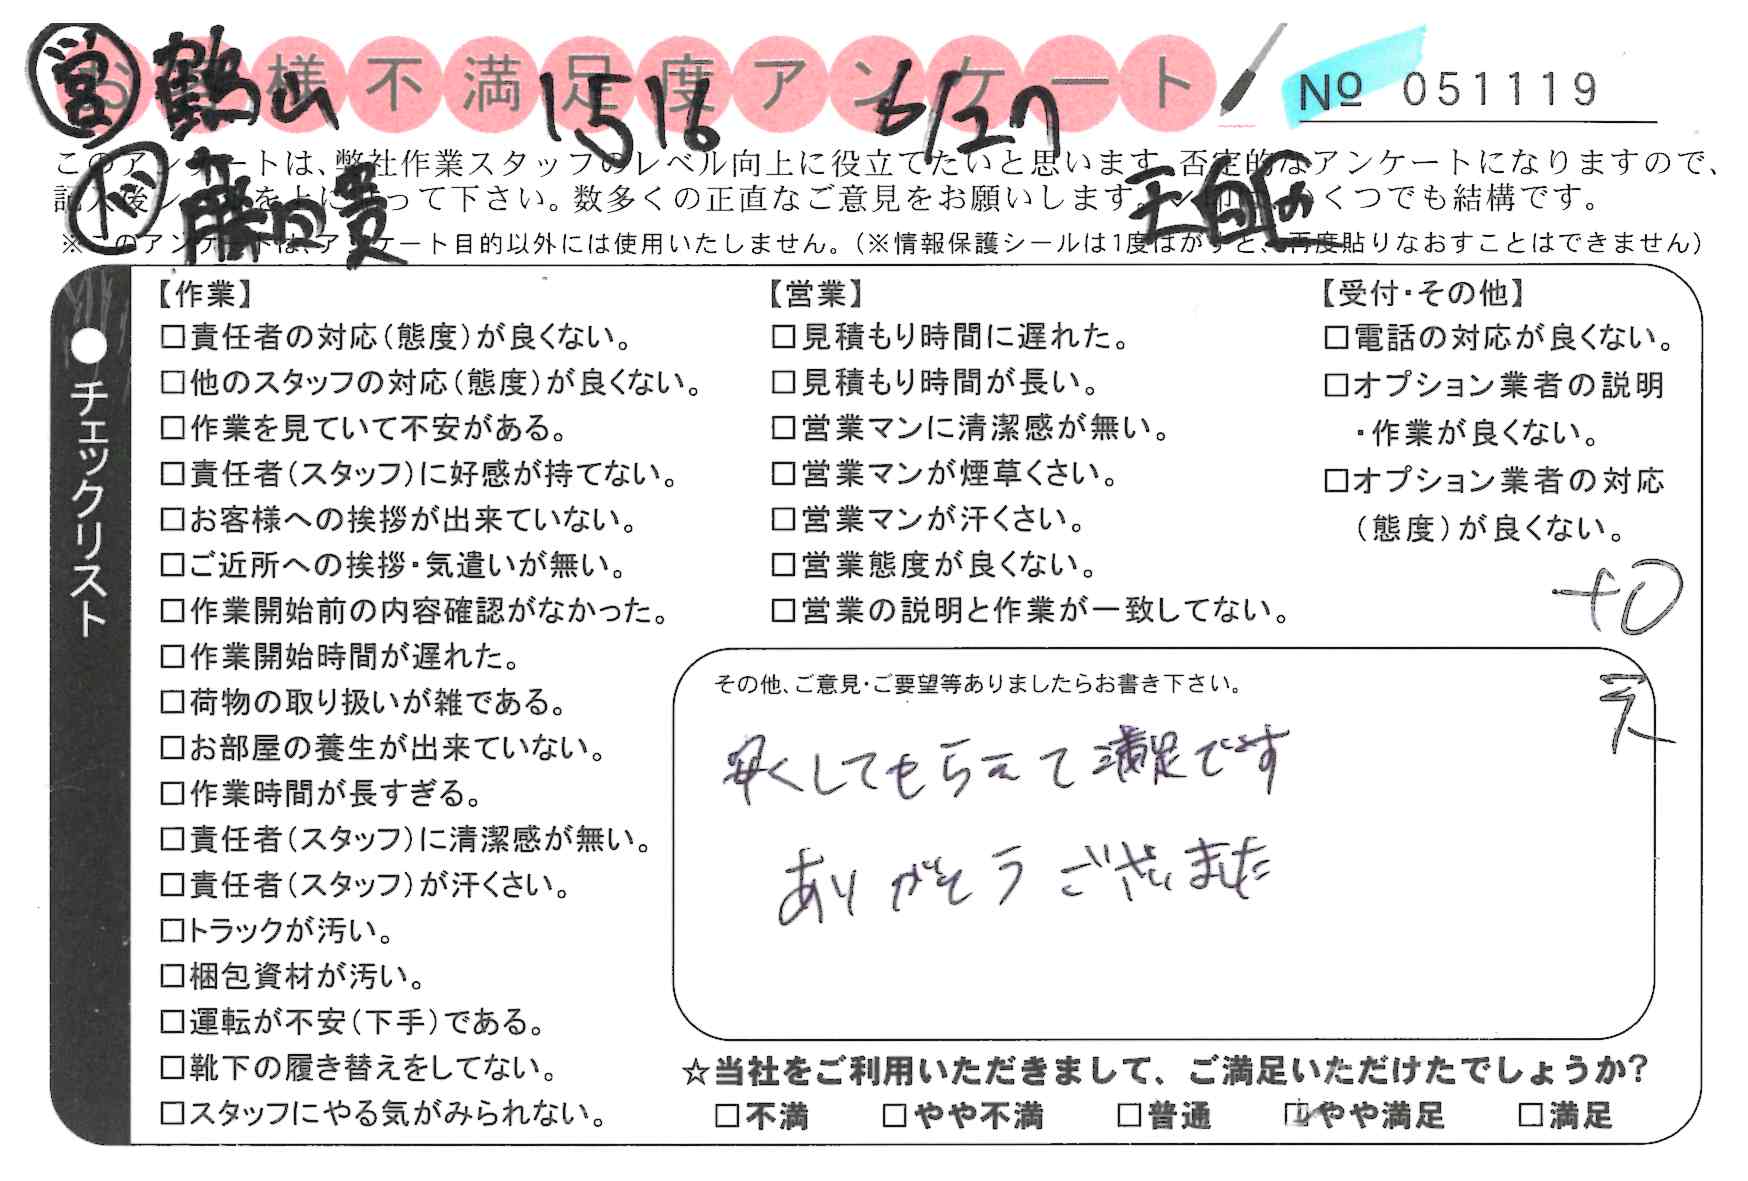 お客様不満足度アンケート
営 鶴山 1516 6/27
№ 051119
このアンケートは、弊社作業スタッフのレベル向上に役立てたいと思います。否定的なアンケートになりますので、
記入後シールを上に貼って下さい。数多くの正直なご意見をお願いします。レ印はいくつでも結構です。
ド 藤田貴 天白区
※このアンケートは、アンケート目的以外には使用いたしません。(※情報保護シールは1度はがすと、再度貼りなおすことはできません)
●チェックリスト
【作業】
□責任者の対応(態度)が良くない。
□他のスタッフの対応(態度)が良くない。
□作業を見ていて不安がある。
□責任者(スタッフ)に好感が持てない。
□お客様への挨拶が出来ていない。
□ご近所への挨拶・気遣いが無い。
□作業開始前の内容確認がなかった。
□作業開始時間が遅れた。
□荷物の取り扱いが雑である。
□お部屋の養生が出来ていない。
□作業時間が長すぎる。
□責任者(スタッフ)に清潔感が無い。
□責任者(スタッフ)が汗くさい。
□トラックが汚い。
□梱包資材が汚い。
□運転が不安(下手)である。
□靴下の履き替えをしてない。
□スタッフにやる気がみられない。
【営業】
□見積もり時間に遅れた。
□見積もり時間が長い。
□営業マンに清潔感が無い。
□営業マンが煙草くさい。
□営業マンが汗くさい。
□営業態度が良くない。
□営業の説明と作業が一致してない。
【受付・その他】
□電話の対応が良くない。
□オプション業者の説明
・作業が良くない。
□オプション業者の対応
(態度)が良くない。
+0
その他、ご意見・ご要望等ありましたらお書き下さい。
安くしてもらえて満足です
ありがとうございました
☆当社をご利用いただきまして、ご満足いただけたでしょうか?
□不満 □やや不満 □普通 ☑やや満足 □満足